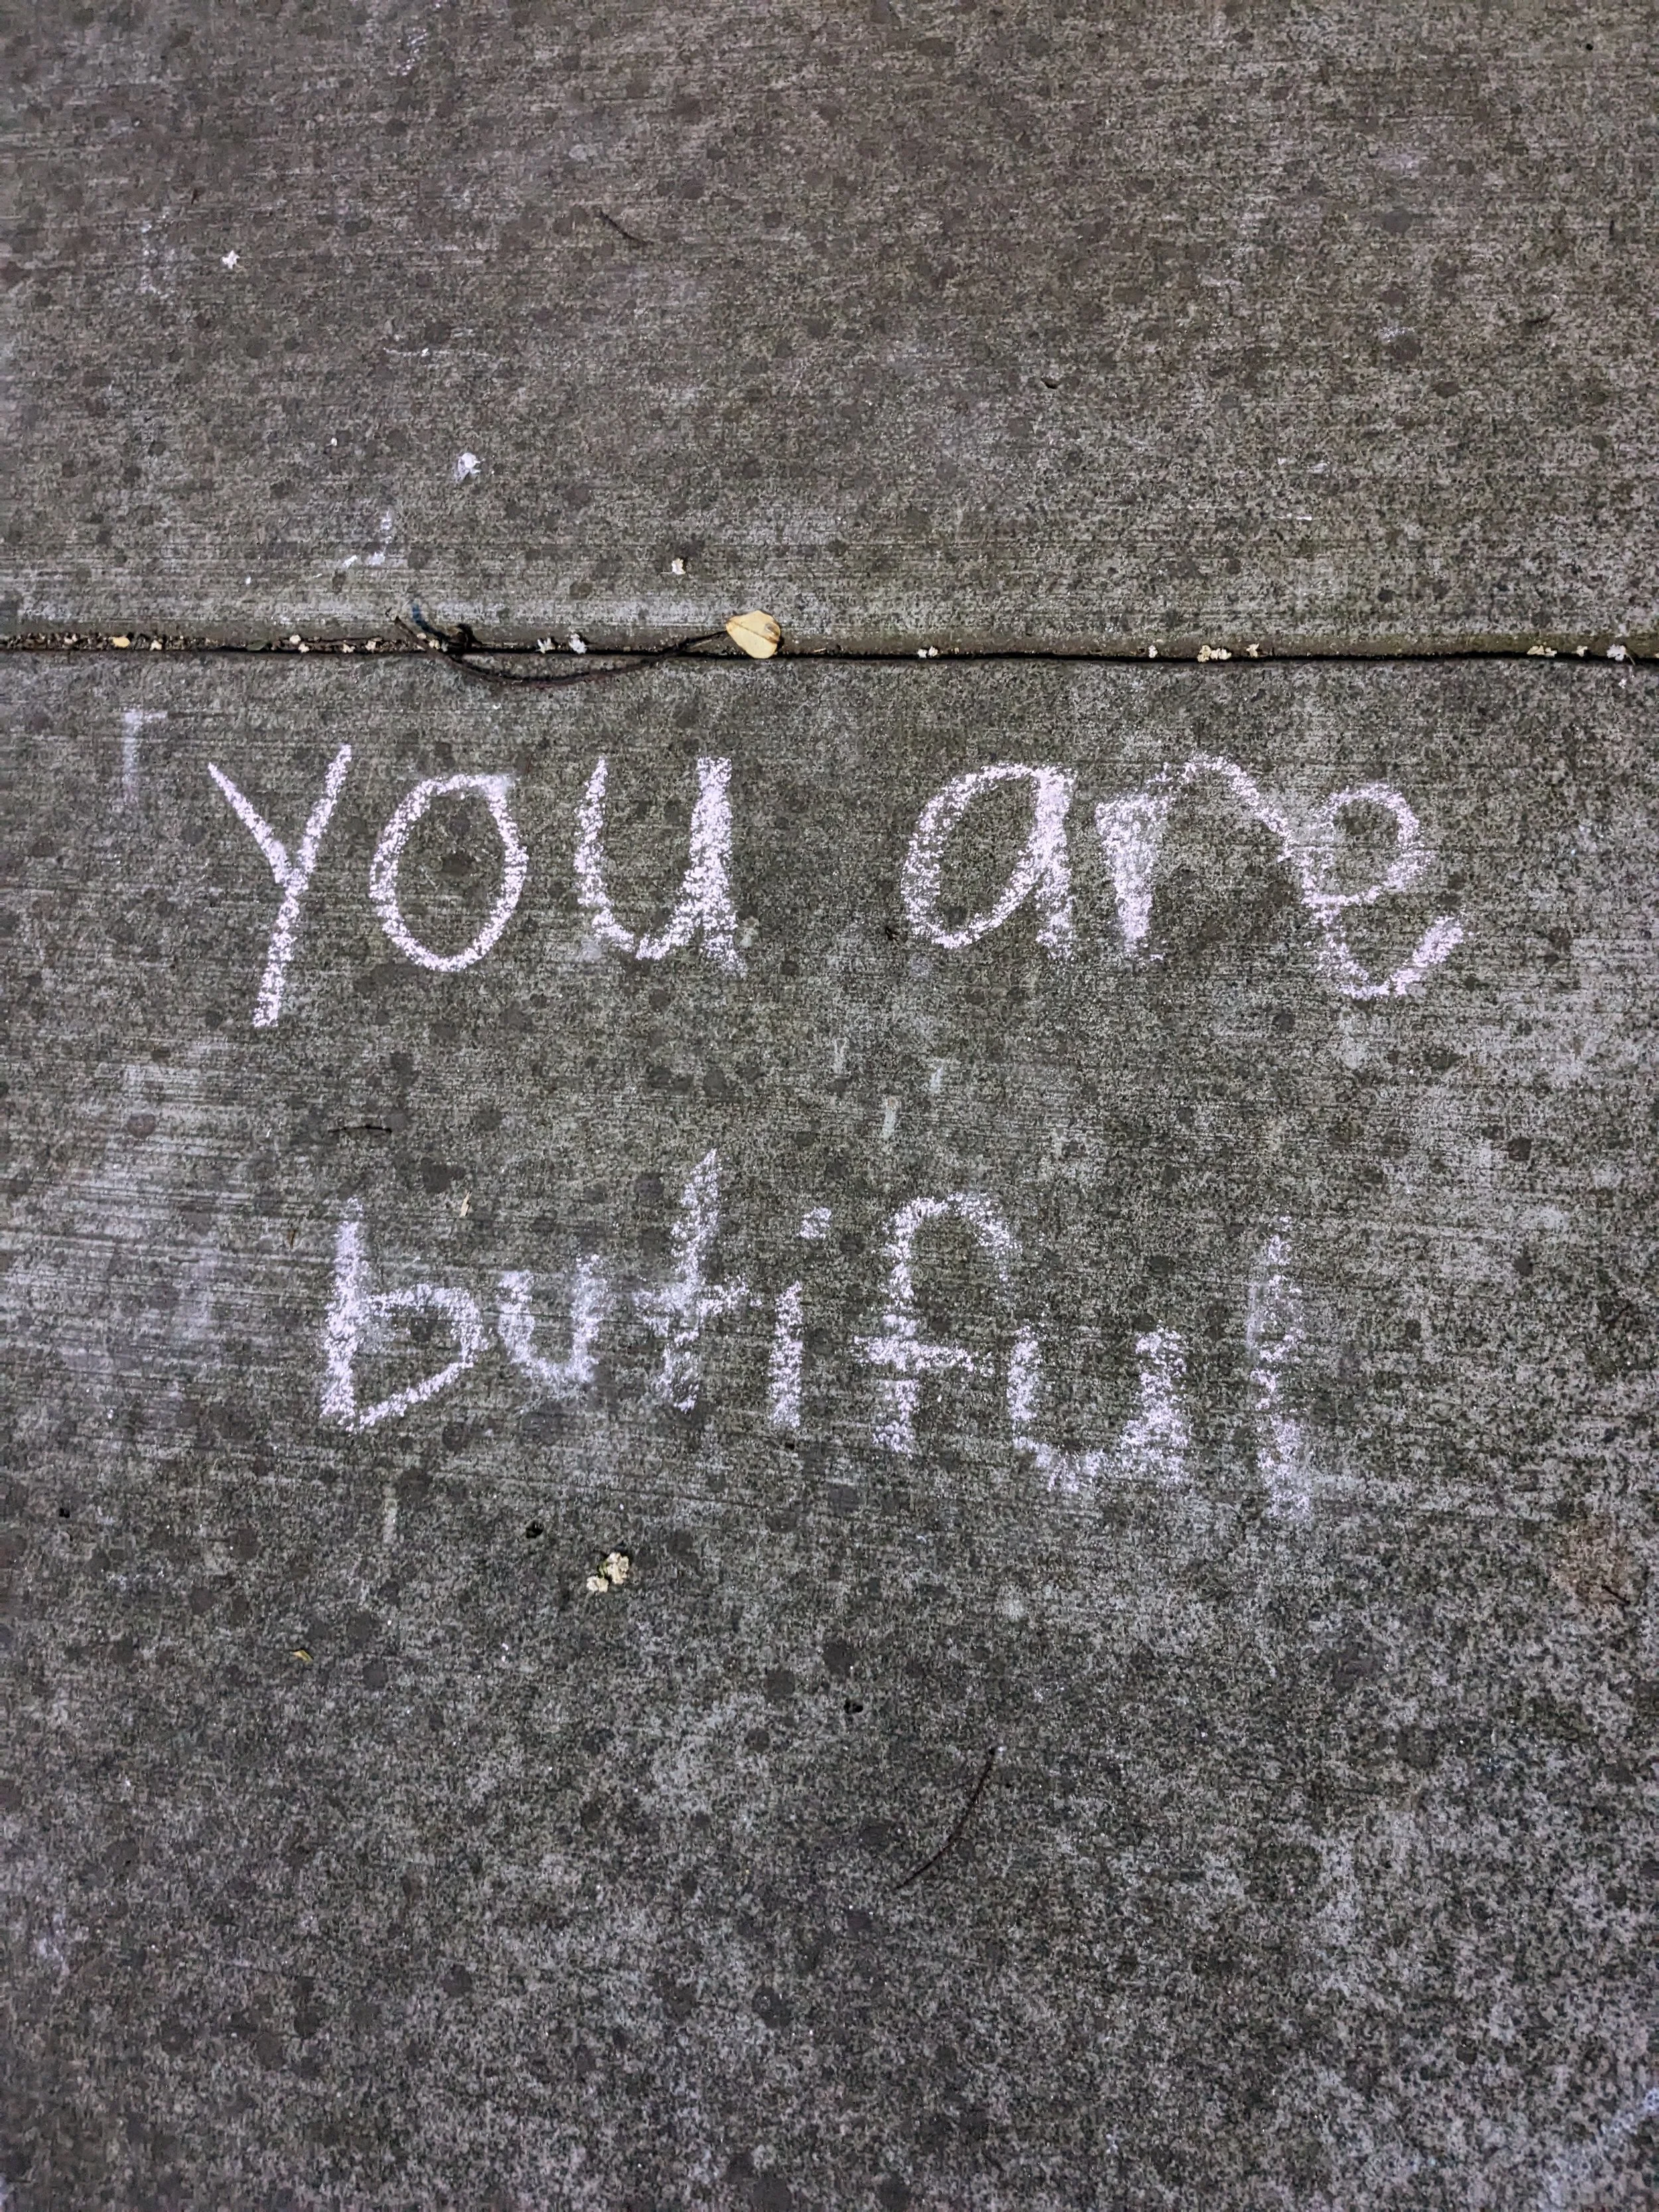 you are
butiful